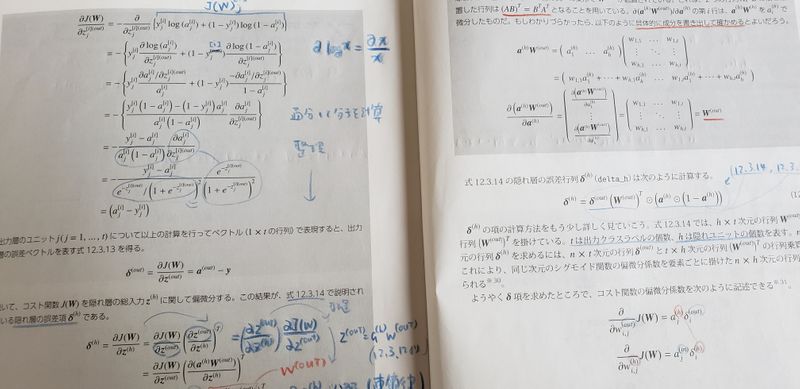 J(W)
∂J(W)/∂z_j^{[i](out)} = -∂/∂z_j^{[i](out)} {y_j^{[i]} log(a_j^{[i]}) + (1 - y_j^{[i]}) log(1 - a_j^{[i]})}
= -{y_j^{[i]} ∂log(a_j^{[i]})/∂z_j^{[i](out)} + (1 - y_j^{[i]}) ∂log(1 - a_j^{[i]})/∂z_j^{[i](out)}}
∂ log x = ∂x/x
= -{y_j^{[i]} (∂a_j^{[i]}/∂z_j^{[i](out)})/a_j^{[i]} + (1 - y_j^{[i]}) (-∂a_j^{[i]}/∂z_j^{[i](out)})/(1 - a_j^{[i]})}
= -{(y_j^{[i]}(1 - a_j^{[i]}) - (1 - y_j^{[i]}) a_j^{[i]})/(a_j^{[i]}(1 - a_j^{[i]})) ∂a_j^{[i]}/∂z_j^{[i](out)}}
通分して分子を計算
= -(y_j^{[i]} - a_j^{[i]})/(a_j^{[i]}(1 - a_j^{[i]})) ∂a_j^{[i]}/∂z_j^{[i](out)}
整理
= -(y_j^{[i]} - a_j^{[i]})/(e^{-z_j^{[i](out)}}/(1 + e^{-z_j^{[i](out)}})^2) e^{-z_j^{[i](out)}}/(1 + e^{-z_j^{[i](out)}})^2
= (a_j^{[i]} - y_j^{[i]})
出力層のユニット j (j = 1, ..., t) について以上の計算を行ってベクトル (1 × t の行列) で表現すると、出力
層の誤差ベクトルを表す式 12.3.13 を得る。
δ^{(out)} = ∂J(W)/∂z^{(out)} = a^{(out)} - y
いて、コスト関数 J(W) を隠れ層の総入力 z^{(h)} に関して偏微分する。この結果が、式 12.3.14 で説明され
いる隠れ層の誤差項 δ^{(h)} である。
δ^{(h)} = ∂J(W)/∂z^{(h)} = ∂J(W)/∂z^{(out)} (∂z^{(out)}/∂z^{(h)})^T = (∂z^{(out)}/∂z^{(h)}) ∂J(W)/∂z^{(out)}
z^{(out)} = a^{(h)} W^{(out)}
W^{(out)}
置した行列は (AB)^T = B^T A^T となることを用いている。
微分したものだ。もしわかりづらかったら、以下のように具体的に成分を書き出して確かめるとよいだろう。
a^{(h)}W^{(out)} = (a_1^{(h)} ... a_h^{(h)}) (w_{1,1} ... w_{1,t} ⋮ ⋮ w_{h,1} ... w_{h,t})
= (w_{1,1}a_1^{(h)} + ⋯ + w_{h,1}a_h^{(h)} ... w_{1,t}a_1^{(h)} + ⋯ + w_{h,t}a_h^{(h)})
∂(a^{(h)}W^{(out)})/∂a^{(h)} = (∂(a^{(h)}W^{(out)})/∂a_1^{(h)} ⋮ ∂(a^{(h)}W^{(out)})/∂a_h^{(h)}) = (w_{1,1} ... w_{1,t} ⋮ ⋮ w_{h,1} ... w_{h,t}) = W^{(out)}
式 12.3.14 の隠れ層の誤差行列 δ^{(h)} (delta_h) は次のように計算する。
δ^{(h)} = δ^{(out)} (W^{(out)})^T ⊙ (a^{(h)} ⊙ (1 - a^{(h)}))
δ^{(h)} の項の計算方法をもう少し詳しく見ていこう。式 12.3.14 では、h × t 次元の行列 W^{(out)}
行列 (W^{(out)})^T を掛けている。t は出力クラスラベルの個数、h は隠れユニットの個数を表す。
元の行列 δ^{(h)} を求めるには、n × t 次元の行列 δ^{(out)} と t × h 次元の行列 (W^{(out)})^T の行列乗
これにより、同じ次元のシグモイド関数の偏微分係数を要素ごとに掛けた n × h 次元の行
られる
ようやく δ 項を求めたところで、コスト関数の偏微分係数を次のように記述できる
∂/∂w_{i,j}^{(out)} J(W) = a_j^{(h)} δ_i^{(out)}
∂/∂w_{i,j}^{(h)} J(W) = a_j^{(in)} δ_i^{(h)}